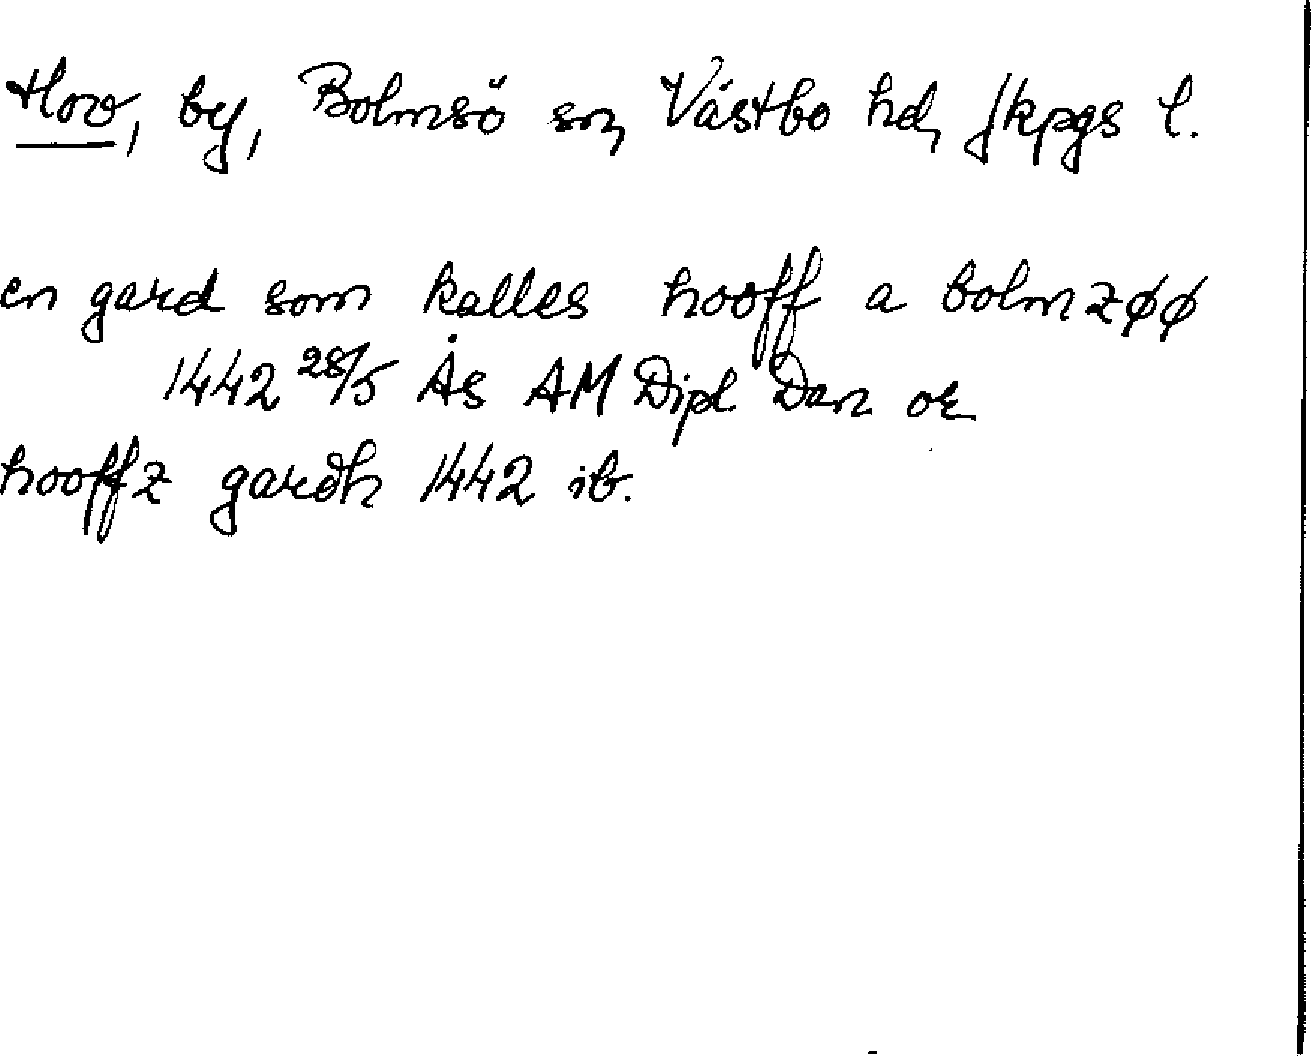 Hov, by, Bolmsö sn, Västbo hd, Jkpgs l.
en gard som kalles hooff a bolmzøø
1442 28/5 Ås AM Dipl Dan or
hooffz gardh 1442 ib.